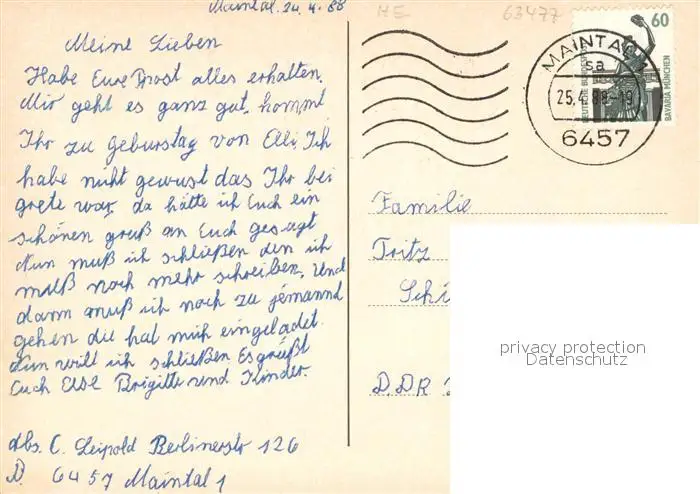 Maintal. 24.4.88
Meine Lieben
Habe Eure Post alles erhalten,
Mir geht es ganz gut. kommt
Ihr zu Geburstag von Elli. Ich
habe nicht gewust das Ihr bei
grete war. da hätte ich Euch ein
schönen gruß an Euch gesagt
Nun muß ich schließen den ich
muß noch mehr schreiben, und
dann muß ich noch zu jemannd
gehen die hat mich eingeladet.
Nun will ich schließen Es grüßt
Euch Brigitte und Kinder.
abs. C. Leipold Berlinerstr 126
D. 6457 Maintal 1
HE 63477
60
DEUTSCHE BUNDESPOST
BAVARIA MÜNCHEN
MAINTAL
sa
25.4.88-19
6457
Familie
Fritz
Schi
DDR
privacy protection
Datenschutz